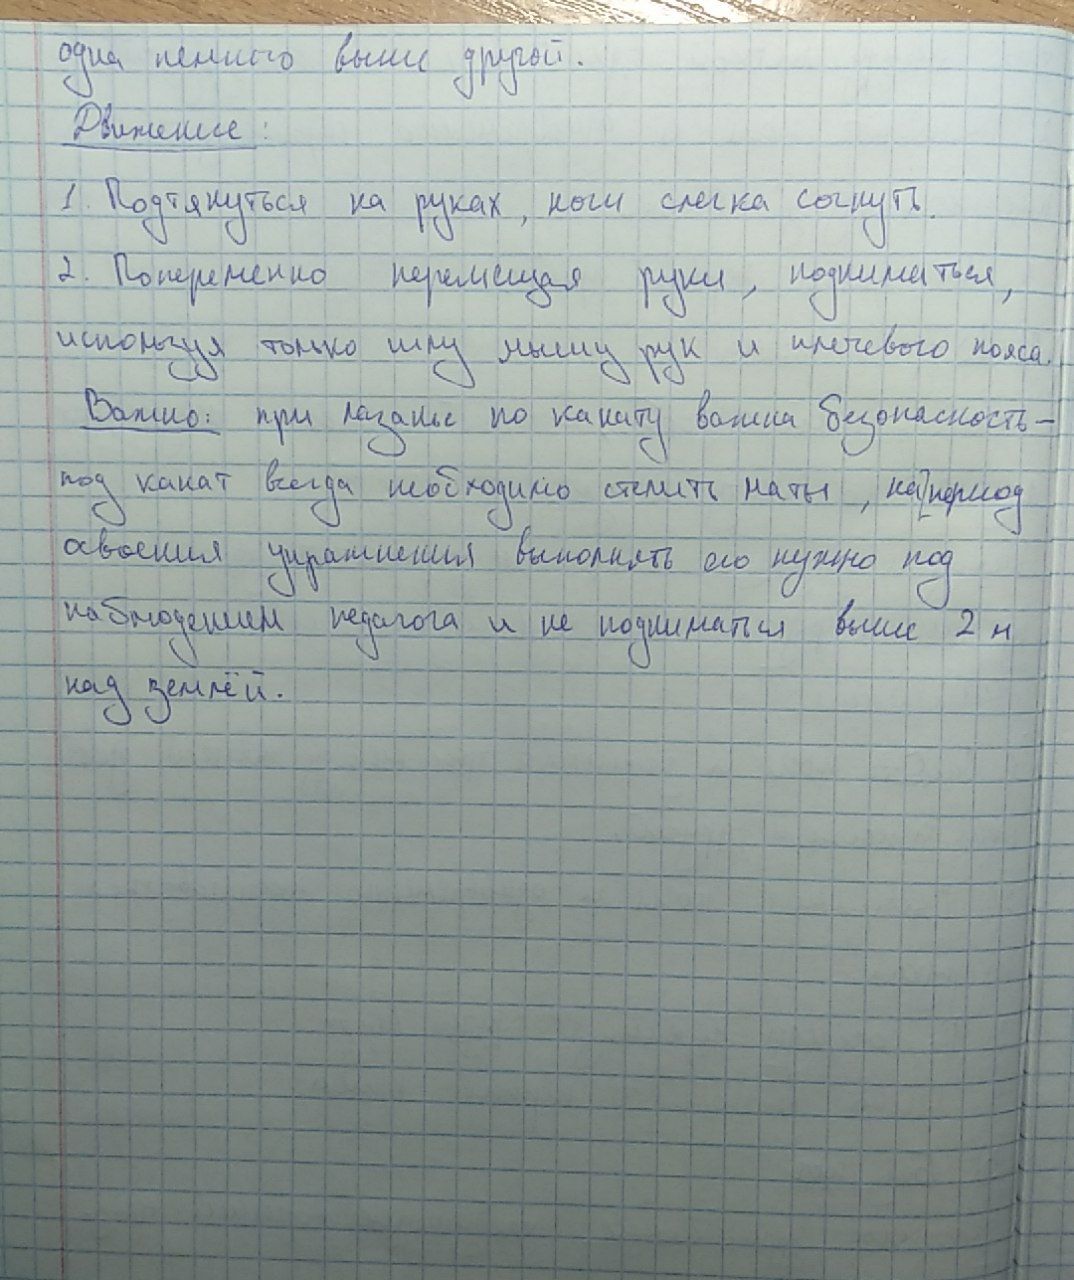 одна немного выше другой.
Движение:
1. Подтянуться на руках, ноги слегка согнуть.
2. Попеременно перемещая руки, подниматься,
используя только силу мышц рук и плечевого пояса.
Важно: при лазанье по канату важна безопасность –
под канат всегда необходимо стелить маты, на[период
освоения упражнения выполнять его нужно под
наблюдением педагога и не подниматься выше 2 м
над землёй.